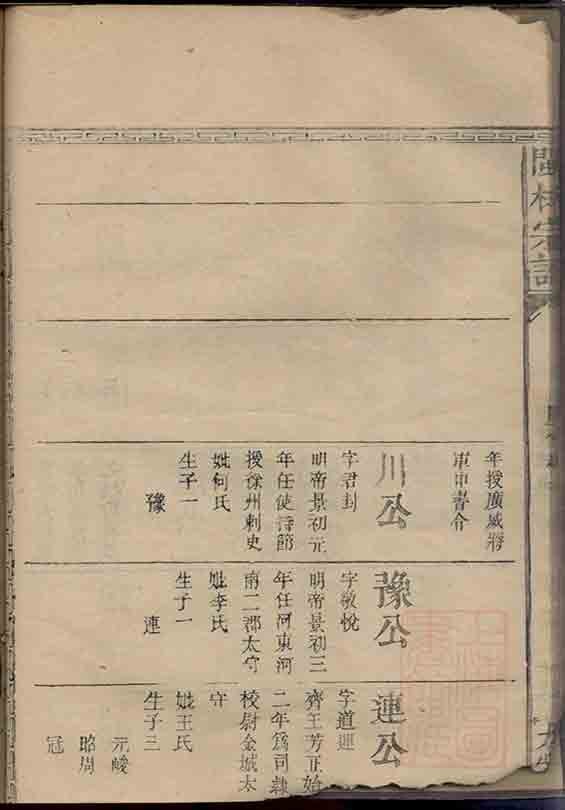 宗譜
年授廣威將
軍中書令
川公
字君封
明帝景初元
年任使持節
授徐州刺史
妣何氏
生子一
豫
豫公
字敬悅
明帝景初三
年任河東河
南二郡太守
妣李氏
生子一
連
連公
字道運
齊王芳正始
二年爲司隷
校尉金城太
守
妣王氏
生子三
元峻
昭周
冠